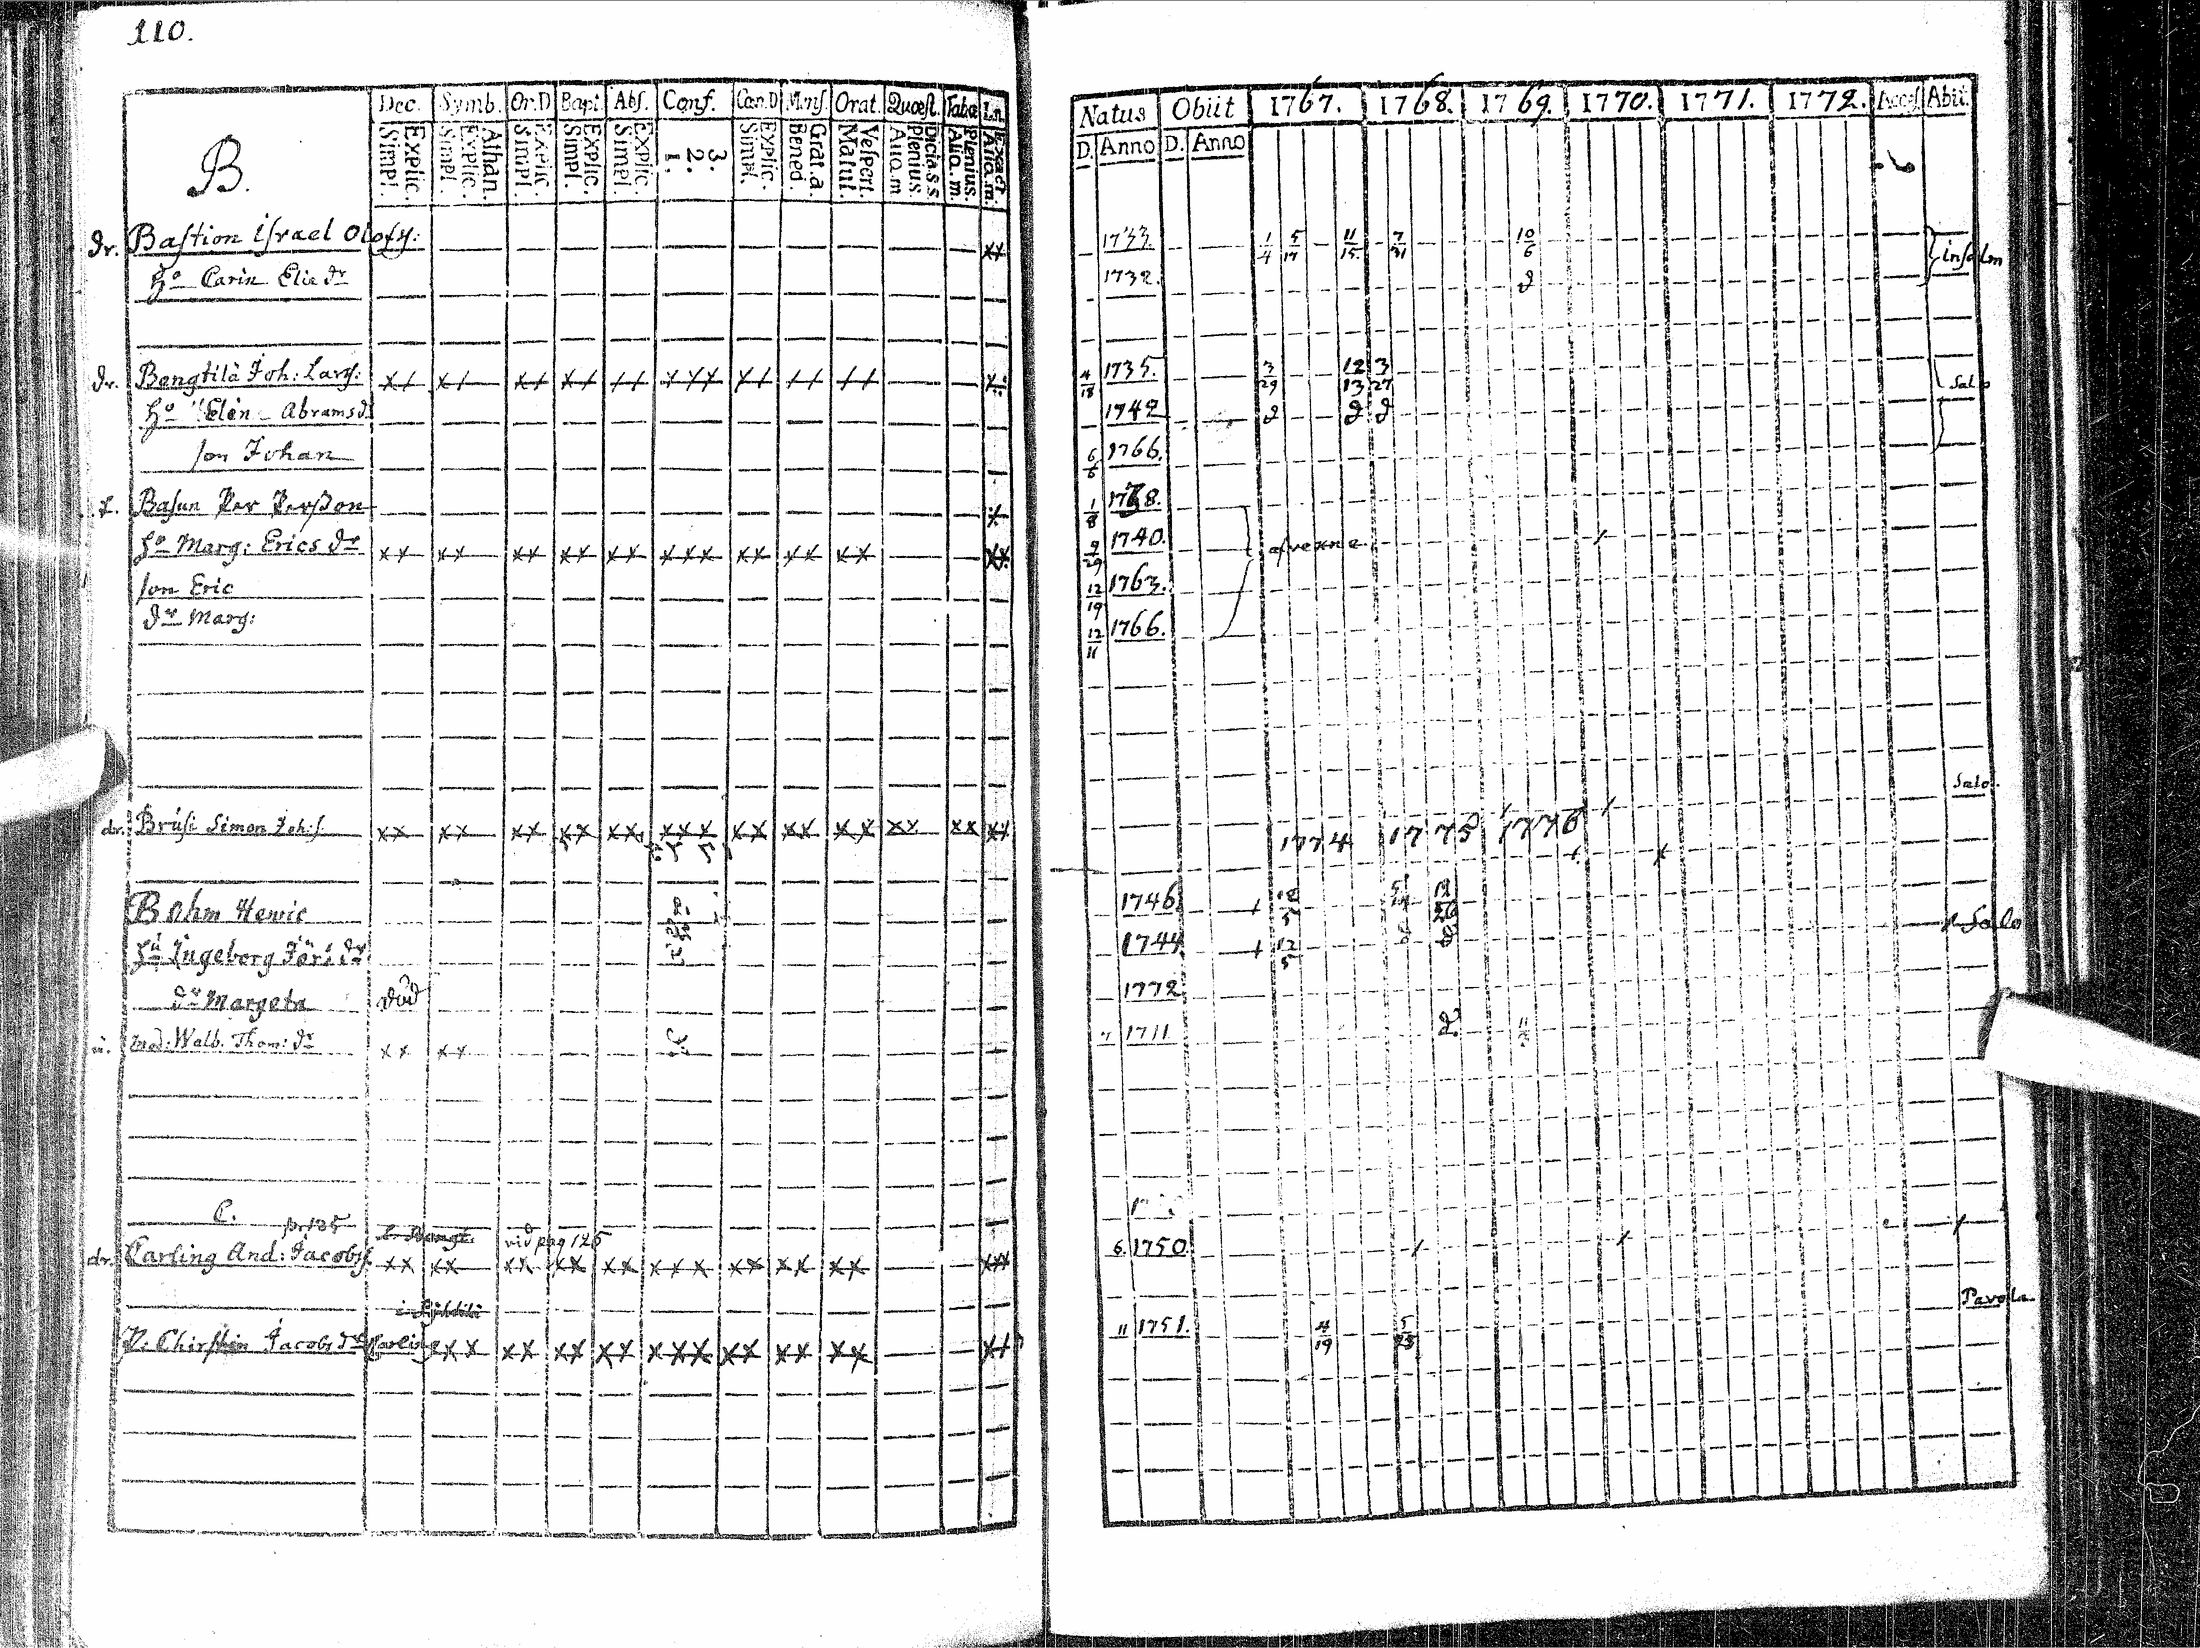 110.
Dec. Symb. Or.D Bapt. Abs. Conf. Cœn.D Mens Orat. Quæst. Tabœ L.n.
Explic. Simpl. Athan. Explic. Simpl. Explic. Simpl. Explic. Simpl. Explic. Simpl. 3. 2. 1. Explic. Simpl. Grat.a. Bened. Vespert. Matut. Dicta.s.s Plenius. Aliq.m Plenius. Aliq.m. Exact Aliq.m.
B.
dr. Bastion Israel Olofss:
Ho Carin Elie dr
dr. Bengtilä Joh: Larss: x+ x+ x+ x+ ++ +++ x+ ++ ++
Ho Elen Abramsd.
son Johan
Basun Per Persson
Ho Marg: Erics dr xx xx xx xx xx xxx xx xx xx xx
son Eric
dr Marg:
dr. Brusi Simon Joh:s xx xx xx xx xx xxx xx xx xx xx xx xx
Bohm Henric
Hu Ingeborg Jör: dr
dr Margeta död
Mod: Walb. Thom: dr xx xx
C.
pr 125 vid pag 125
dr. Carling And: Jacobss xx xx xx xx xx xxx xx xx xx
P: Chirstin Jacobs dr Carling xx xx xx xx xxx xx xx xx
Natus Obiit 1767. 1768. 1769. 1770. 1771. 1772. Acces. Abit.
D. Anno D. Anno
1733. 1/4 5/17 11/15. 7/31 10/6
1732. insalm
4/18 1735. 3/29 12/13 3/27 Salo
1742
6/6 1766.
1/8 1738.
9/29 1740.
12/19 1763.
12/11 1766.
Salo.
1774 1775 1776
1746. 12/5
1744. 12/5 Salo
1772
1711
6. 1750.
Pavola
11 1751. 4/19 5/25